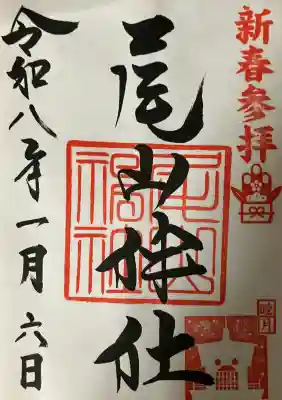 新春参拝
尾山神社
尾山神社
睦月
令和八年一月六日